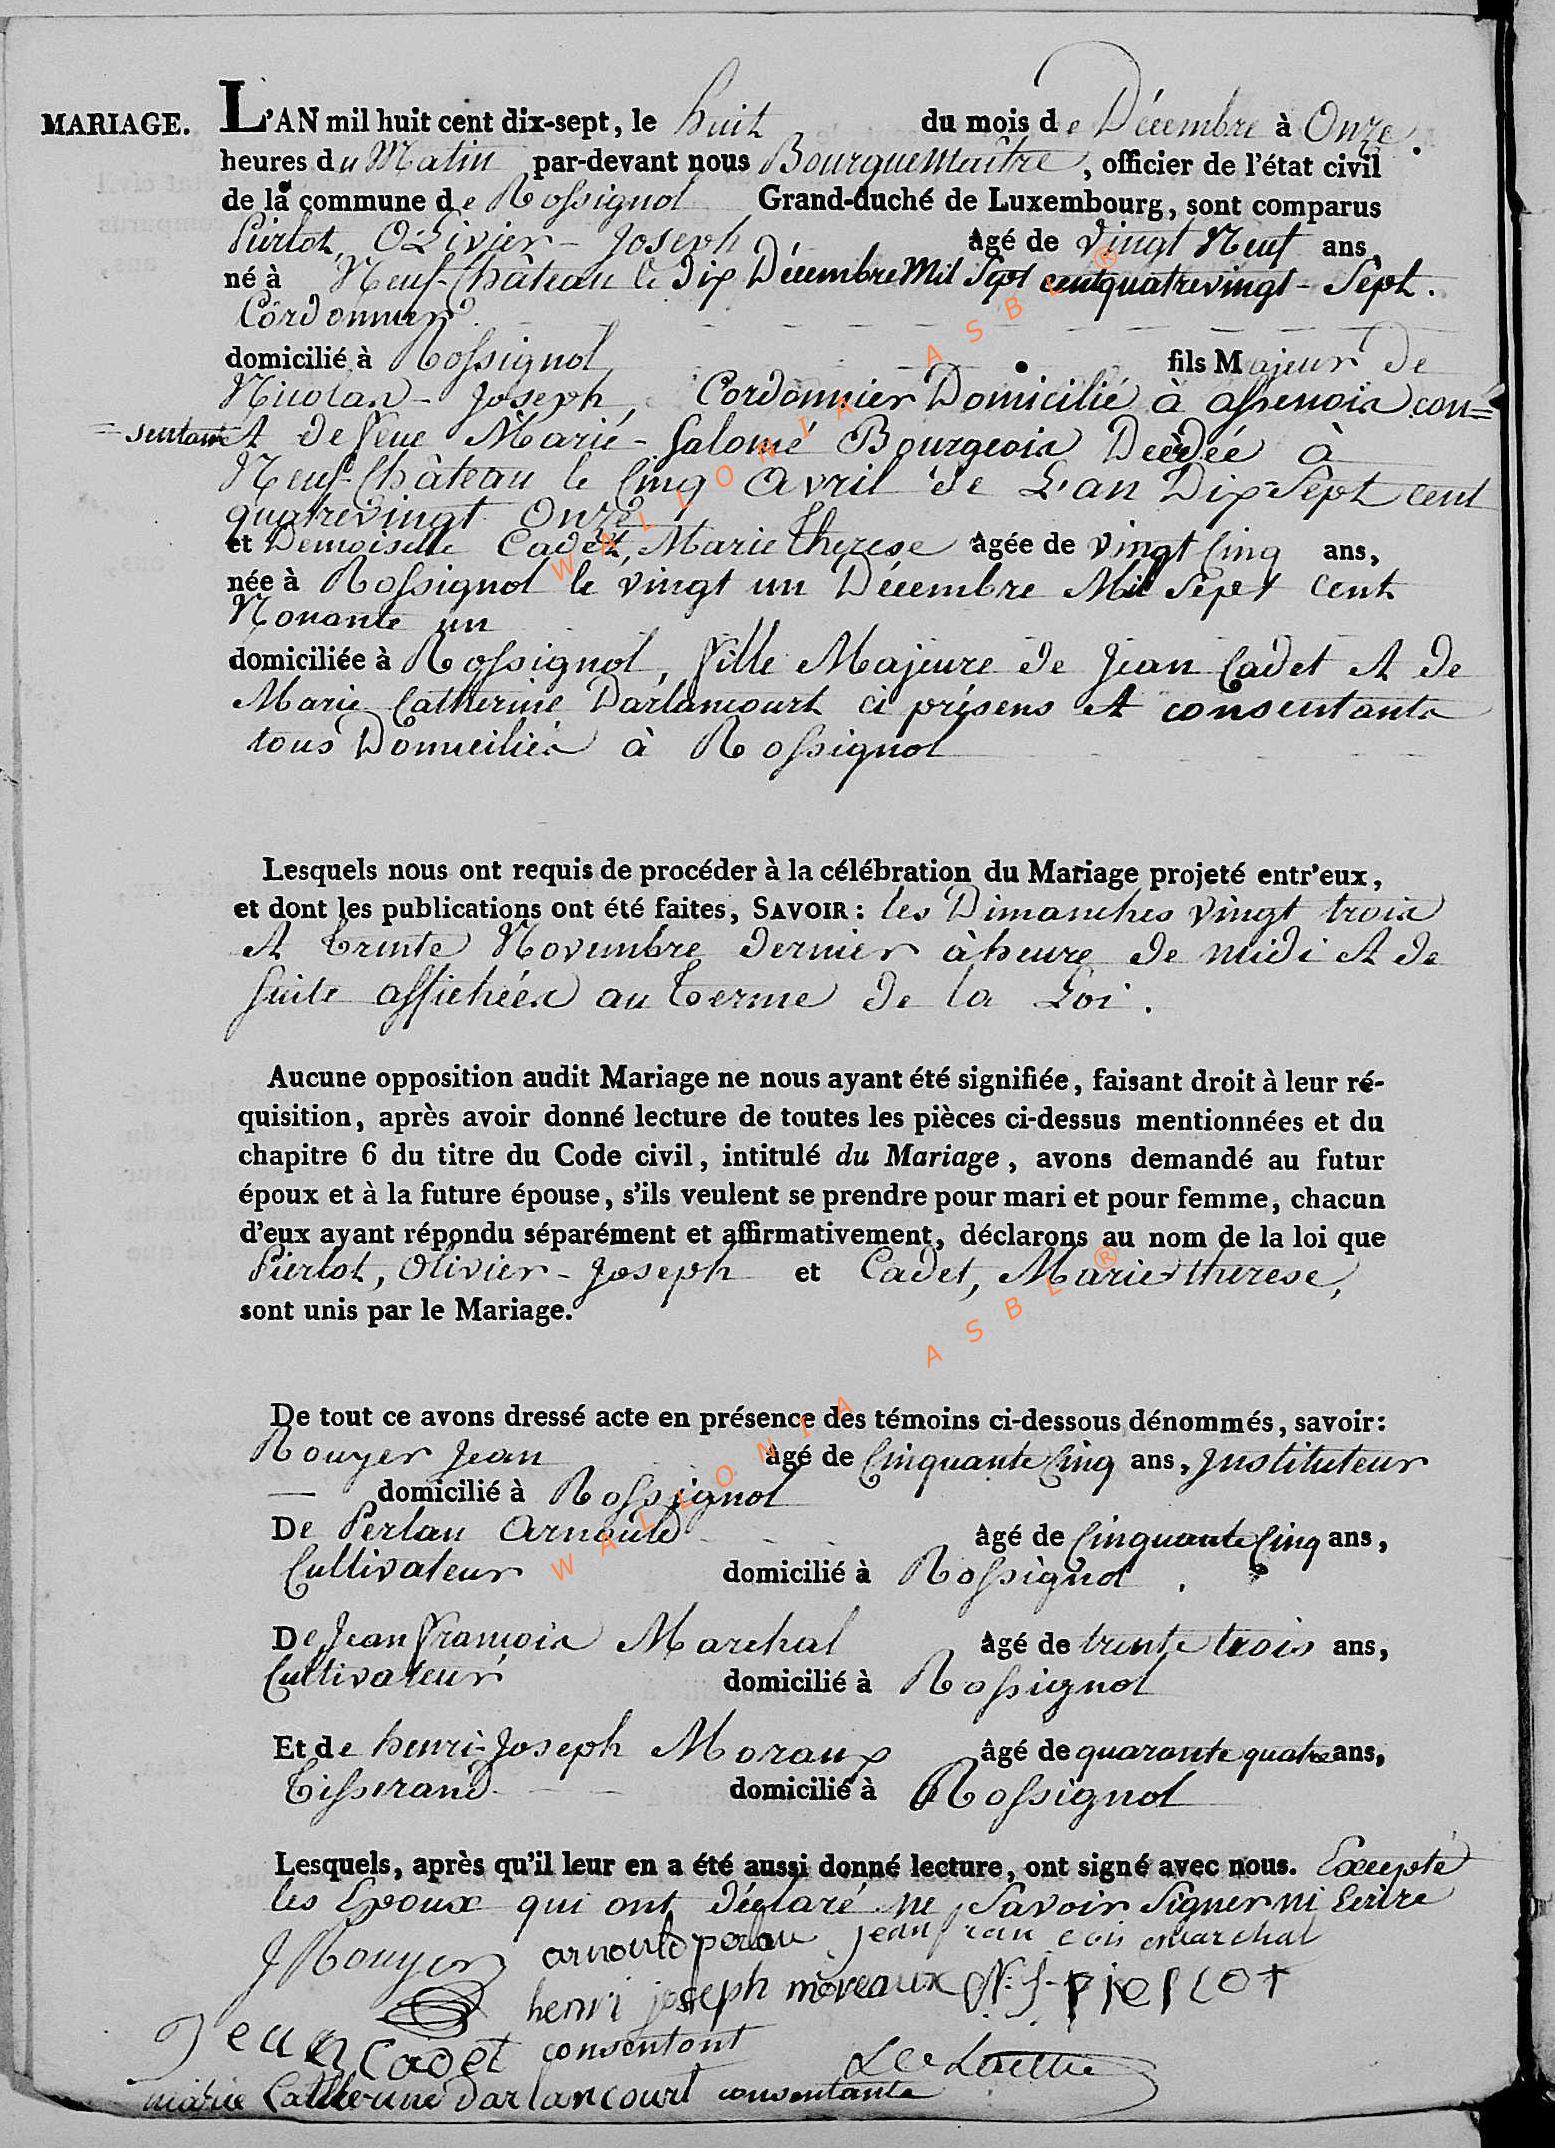 MARIAGE. L'AN mil huit cent dix-sept, le huit du mois de Décembre à Onze
heures du Matin par-devant nous Bourguemaître, officier de l'état civil
de la commune de Rossignol Grand-duché de Luxembourg, sont comparus
Pierlot, Olivier-Joseph âgé de vingt Neuf ans,
né à Neuf-Château le dix Décembre Mil Sept cent quatrevingt-Sept.
Cordonnier
domicilié à Rossignol fils Majeur de
Nicolas-Joseph, Cordonnier Domicilié à assenois con=
=sentant et de feue Marie-Salomé Bourgeois Décédée à
Neuf-Château le Cinq Avril de L'an Dix-Sept cent
quatrevingt Onze
et Demoiselle Cadet, Marie Therese agée de vingt Cinq ans,
née à Rossignol le vingt un Décembre Mil Sept Cent
Nonante un
domiciliée à Rossignol, fille Majeure de Jean Cadet et de
Marie Catherine Darlancourt ci présens et consentants
tous Domiciliés à Rossignol
Lesquels nous ont requis de procéder à la célébration du Mariage projeté entr'eux,
et dont les publications ont été faites, SAVOIR: les Dimanches vingt trois
et trente Novembre dernier à heure de midi et de
suite affichées au terme de la Loi.
Aucune opposition audit Mariage ne nous ayant été signifiée, faisant droit à leur ré-
quisition, après avoir donné lecture de toutes les pièces ci-dessus mentionnées et du
chapitre 6 du titre du Code civil, intitulé du Mariage, avons demandé au futur
époux et à la future épouse, s'ils veulent se prendre pour mari et pour femme, chacun
d'eux ayant répondu séparément et affirmativement, déclarons au nom de la loi que
Pierlot, Olivier-Joseph et Cadet, Marie therese,
sont unis par le Mariage.
De tout ce avons dressé acte en présence des témoins ci-dessous dénommés, savoir:
Rouyer Jean âgé de Cinquante Cinq ans, Instituteur
domicilié à Rossignol
De Perlau Arnould âgé de Cinquante Cinq ans,
Cultivateur domicilié à Rossignol.
De Jean François Marchal âgé de trente trois ans,
Cultivateur domicilié à Rossignol
Et de henri-Joseph Moraux âgé de quarante quatre ans,
Tisserand domicilié à Rossignol
Lesquels, après qu'il leur en a été aussi donné lecture, ont signé avec nous. Excepté
les Epoux qui ont déclaré ne Savoir Signer ni Ecrire
J Rouyer arnould perlau jean fran cois marchal
henri joseph moreaux N. J. pierlot
Jean Cadet consentant
marie Catherine darlancourt consentante
WALLONIA ASBL ®
WALLONIA ASBL ®